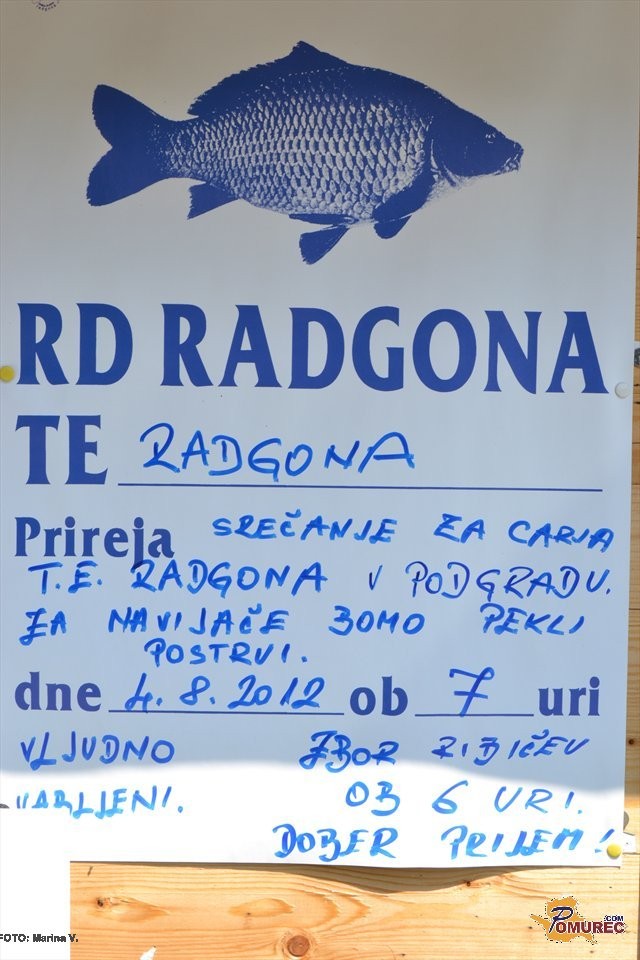 RD RADGONA
TE RADGONA
Prireja SREČANJE ZA CARJA
T.E. RADGONA V PODGRADU.
ZA NAVIJAČE BOMO PEKLI
POSTRVI.
dne 4.8.2012 ob 7 uri
VLJUDNO ZBOR RIBIČEV
VABLJENI. OB 6 URI.
DOBER PRIJEM!
FOTO: Marina V.
POMUREC.COM